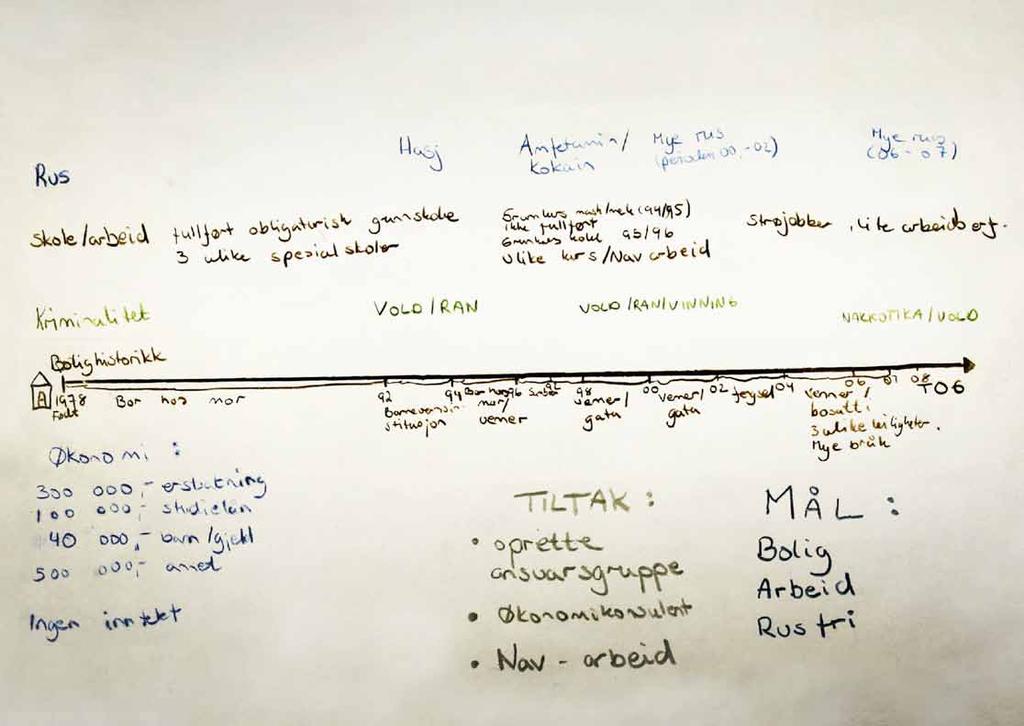 Rus
Hasj
Amfetamin/
Kokain
Mye rus
(perioden 00,-02)
Mye rus
(06-07)
Skole/arbeid
fullført obligatorisk grunnskole
3 ulike spesialskoler
Grunnkurs mask/mek (94/95)
ikke fullført
Grunnkurs 95/96
Ulike kurs/Nav arbeid
Strøjobber, lite arbeidserf.
Kriminalitet
VOLD/RAN
VOLD/RAN/VINNING
NARKOTIKA/VOLD
Bolighistorikk
1978
Født
Bor hos mor
92
Barnevernsin
stitusjon
94
Bor hos
mor/
venner
96
98
venner/
gata
00
venner/
gata
02
fengsel
04
venner/
bosatt i
3 ulike leiligheter.
Mye bråk
06
07
08
TOG
Økonomi:
300 000,- erstatning
100 000,- studielån
40 000,- barn/gjeld
500 000,- annet
Ingen inntekt
TILTAK:
• oprette
ansvarsgruppe
• Økonomikonsulent
• Nav - arbeid
MÅL:
Bolig
Arbeid
Rusfri